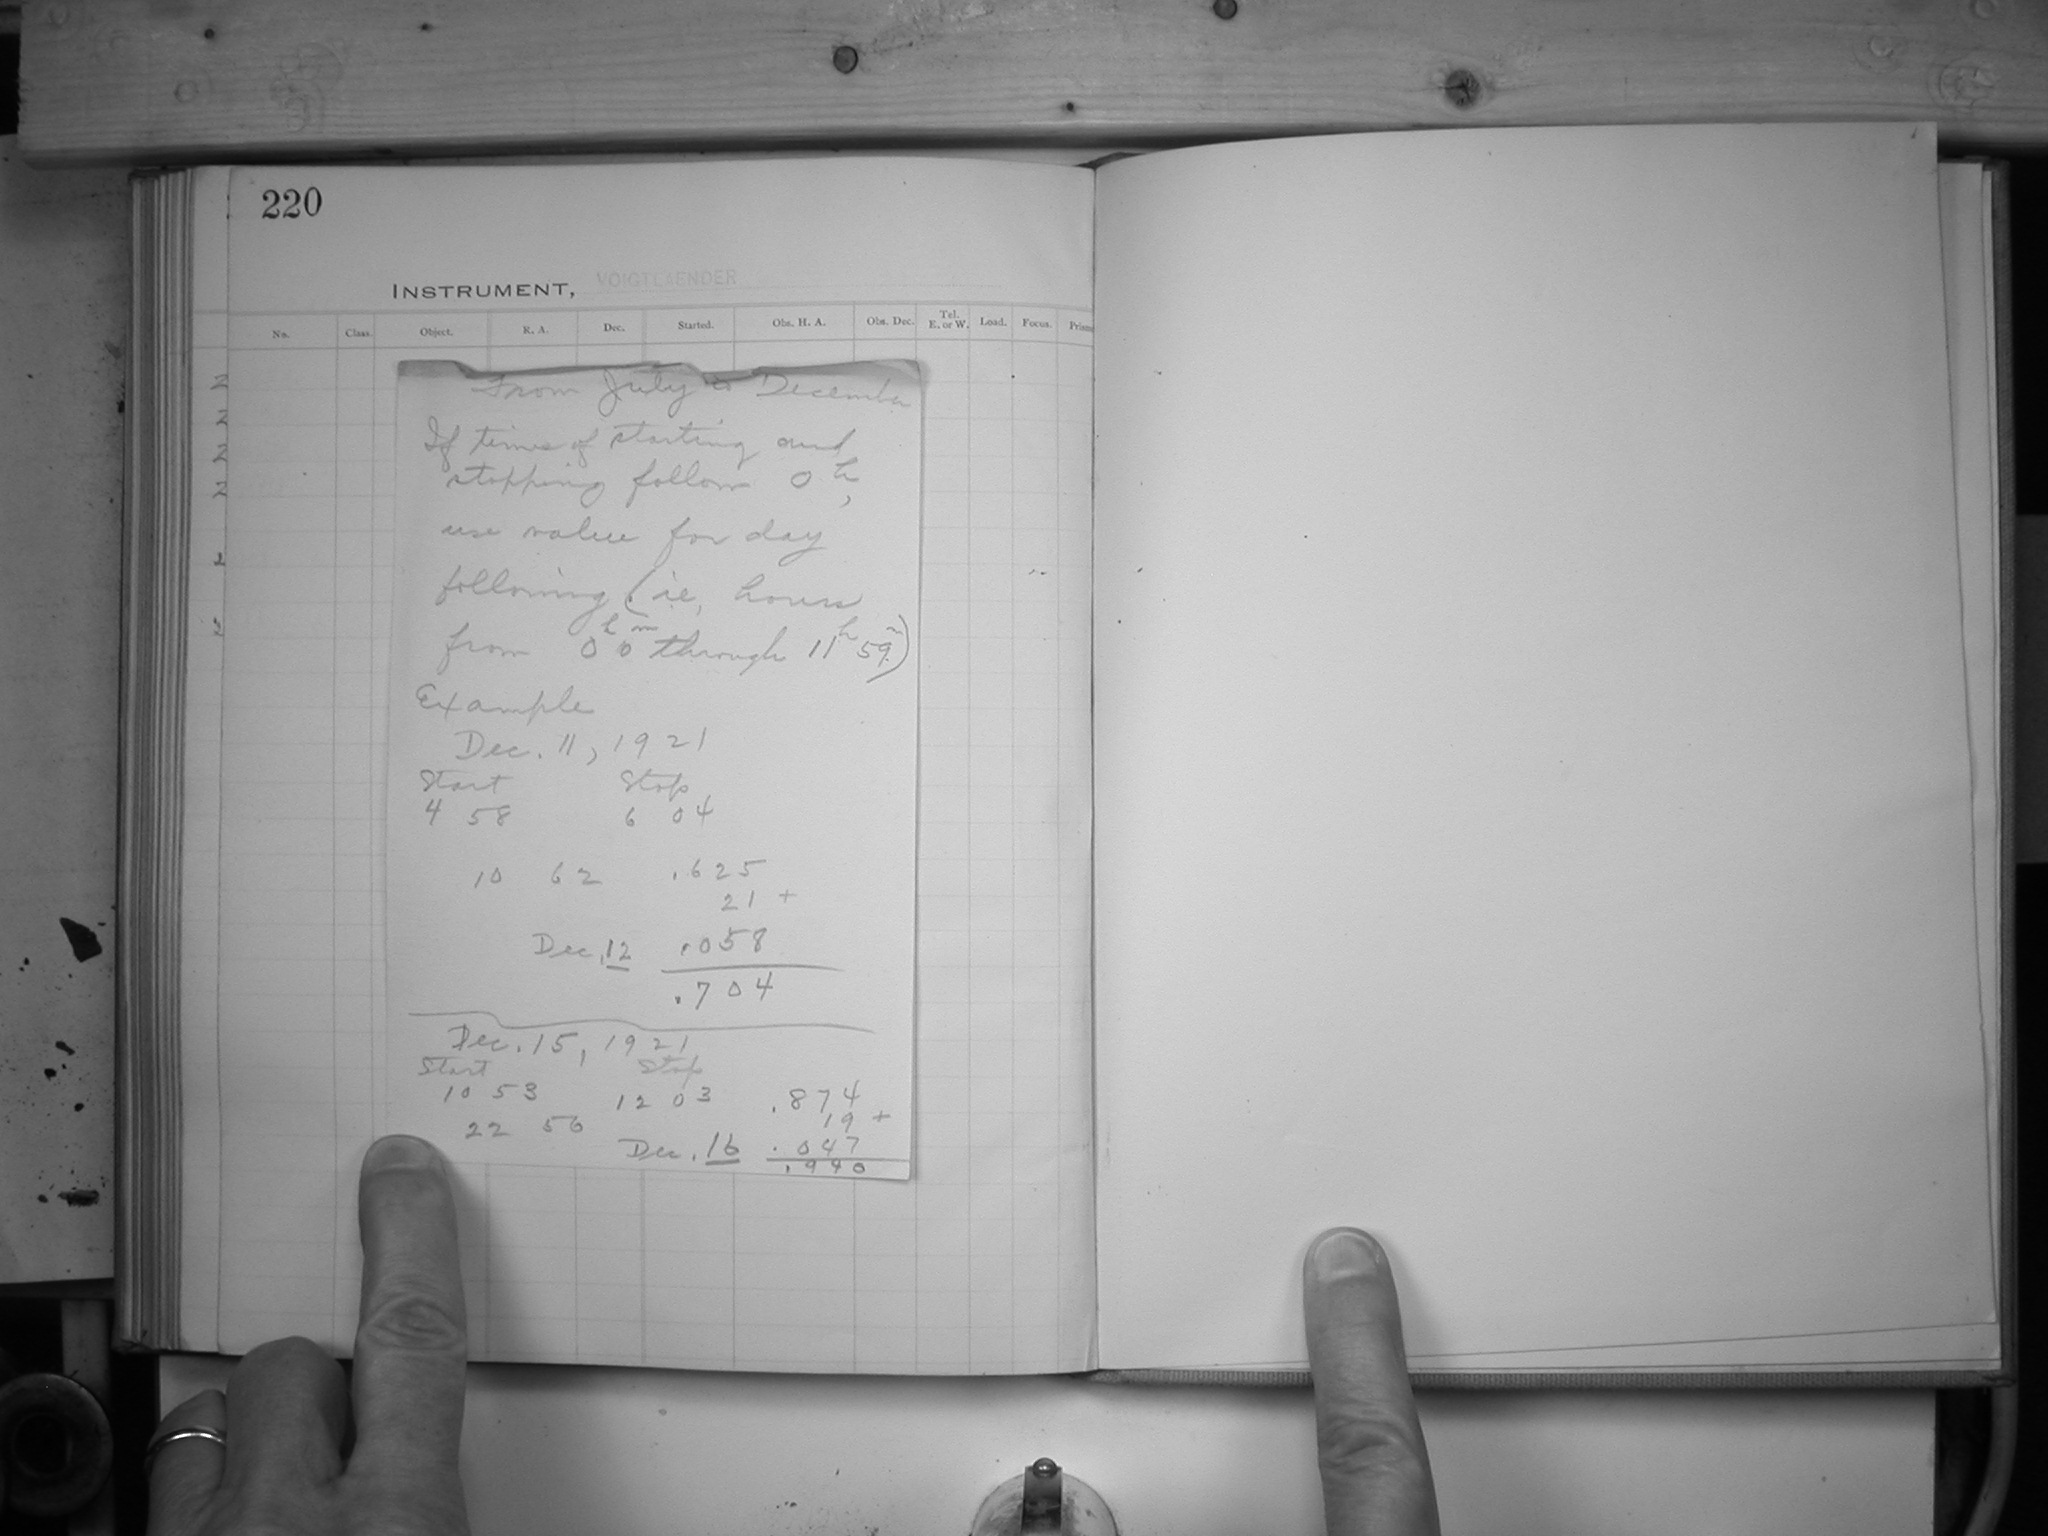 220
INSTRUMENT, VOIGTLAENDER
No. Class. Object. R. A. Dec. Started. Obs. H. A. Obs. Dec. Tel. E. or W. Load. Focus. Prism
From July to December
If times of starting and
stopping follow 0h,
use value for day
following (i.e., hours
from 0h 0m through 11h 59m)
Example
Dec. 11, 1921
Start Stop
4 58 6 04
10 62 .625
21 +
Dec. 12 .058
.704
Dec. 15, 1921
Start Stop
10 53 12 03 .874
19 +
22 56
Dec. 16 .047
.940